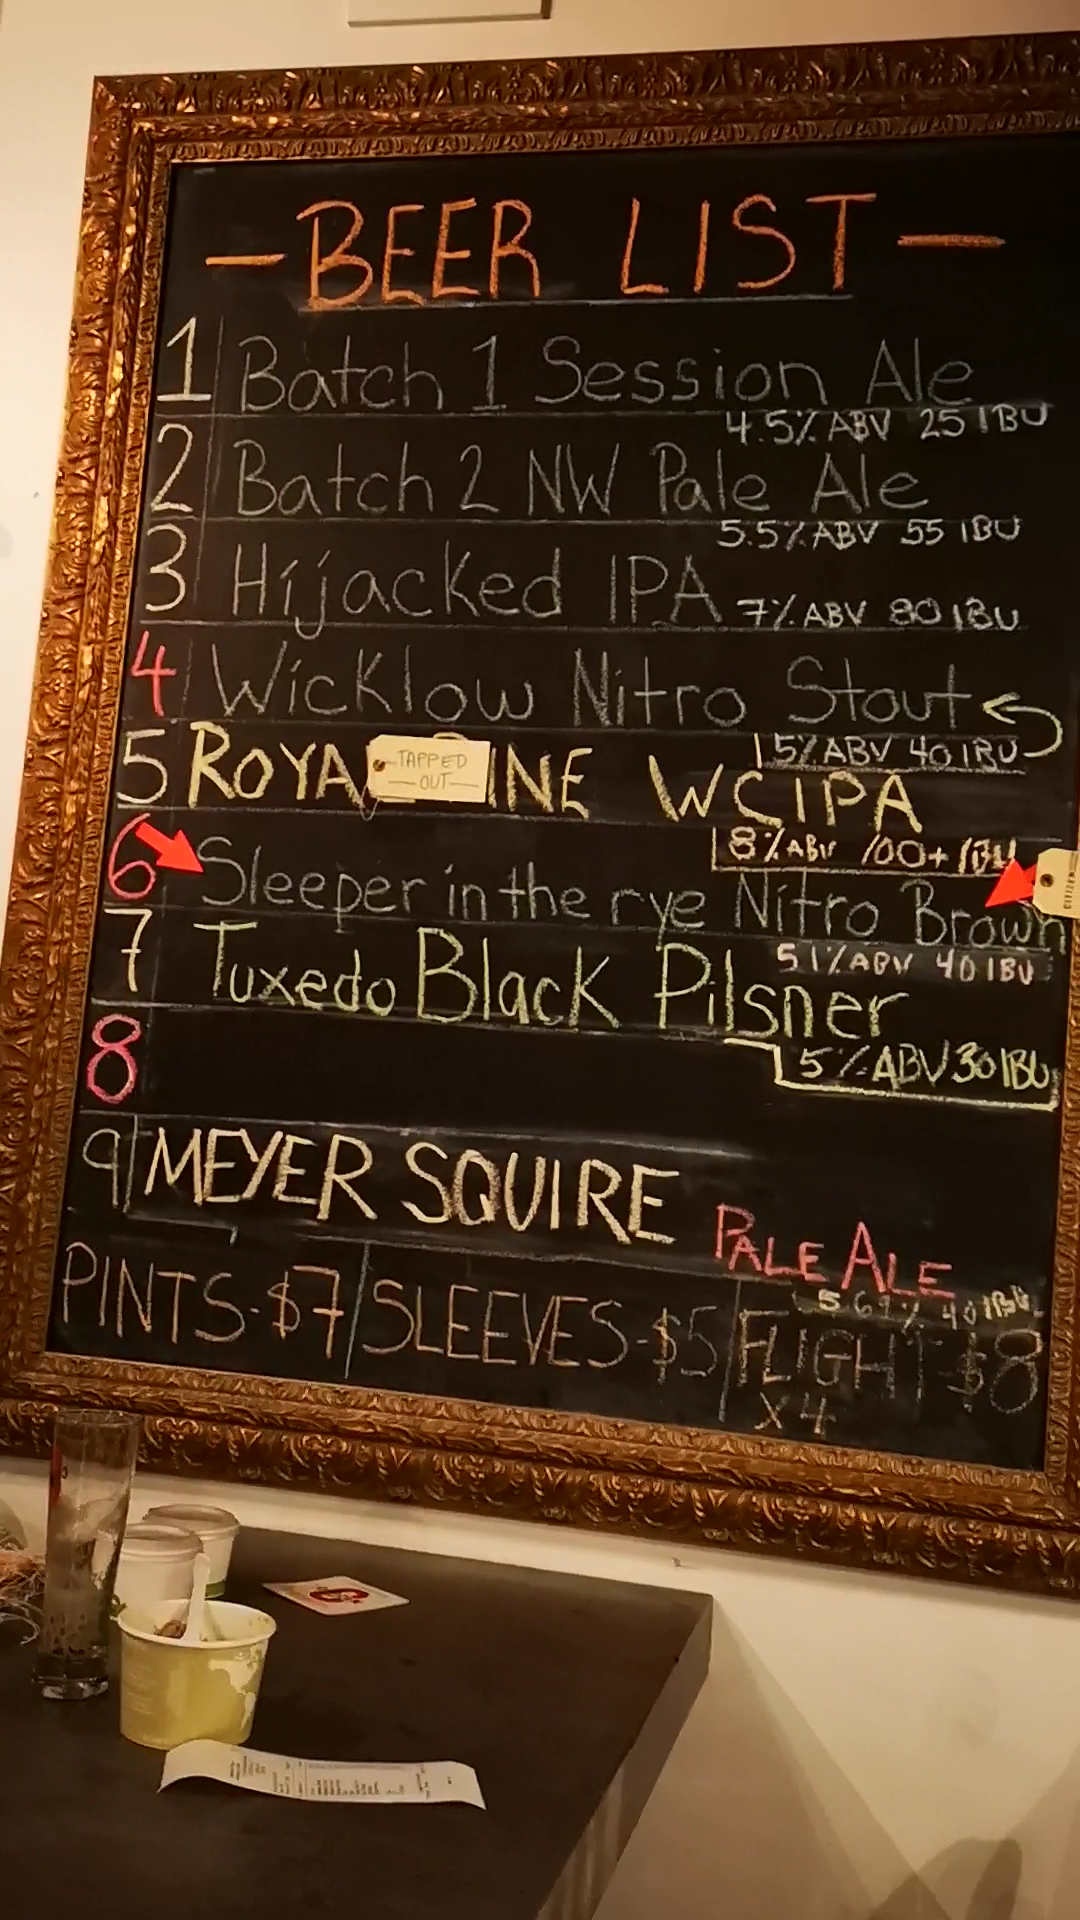 —BEER LIST—
1 Batch 1 Session Ale
4.5% ABV 25 IBU
2 Batch 2 NW Pale Ale
5.5% ABV 55 IBU
3 Hijacked IPA 7% ABV 80 IBU
4 Wicklow Nitro Stout
5% ABV 40 IBU
5 ROYA INE WCIPA
TAPPED
—OUT—
8% ABV 100+ IBU
6 Sleeper in the rye Nitro Brown
5.1% ABV 40 IBU
7 Tuxedo Black Pilsner
5% ABV 30 IBU
8
9 MEYER SQUIRE PALE ALE
5.69% 40 IBU
PINTS-$7 SLEEVES-$5 FLIGHT-$8
x4